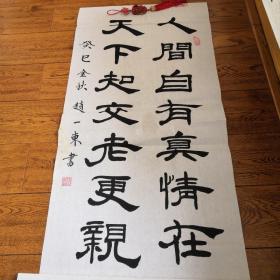 人間自有真情在
天下起交老更親
癸巳金秋趙一東書